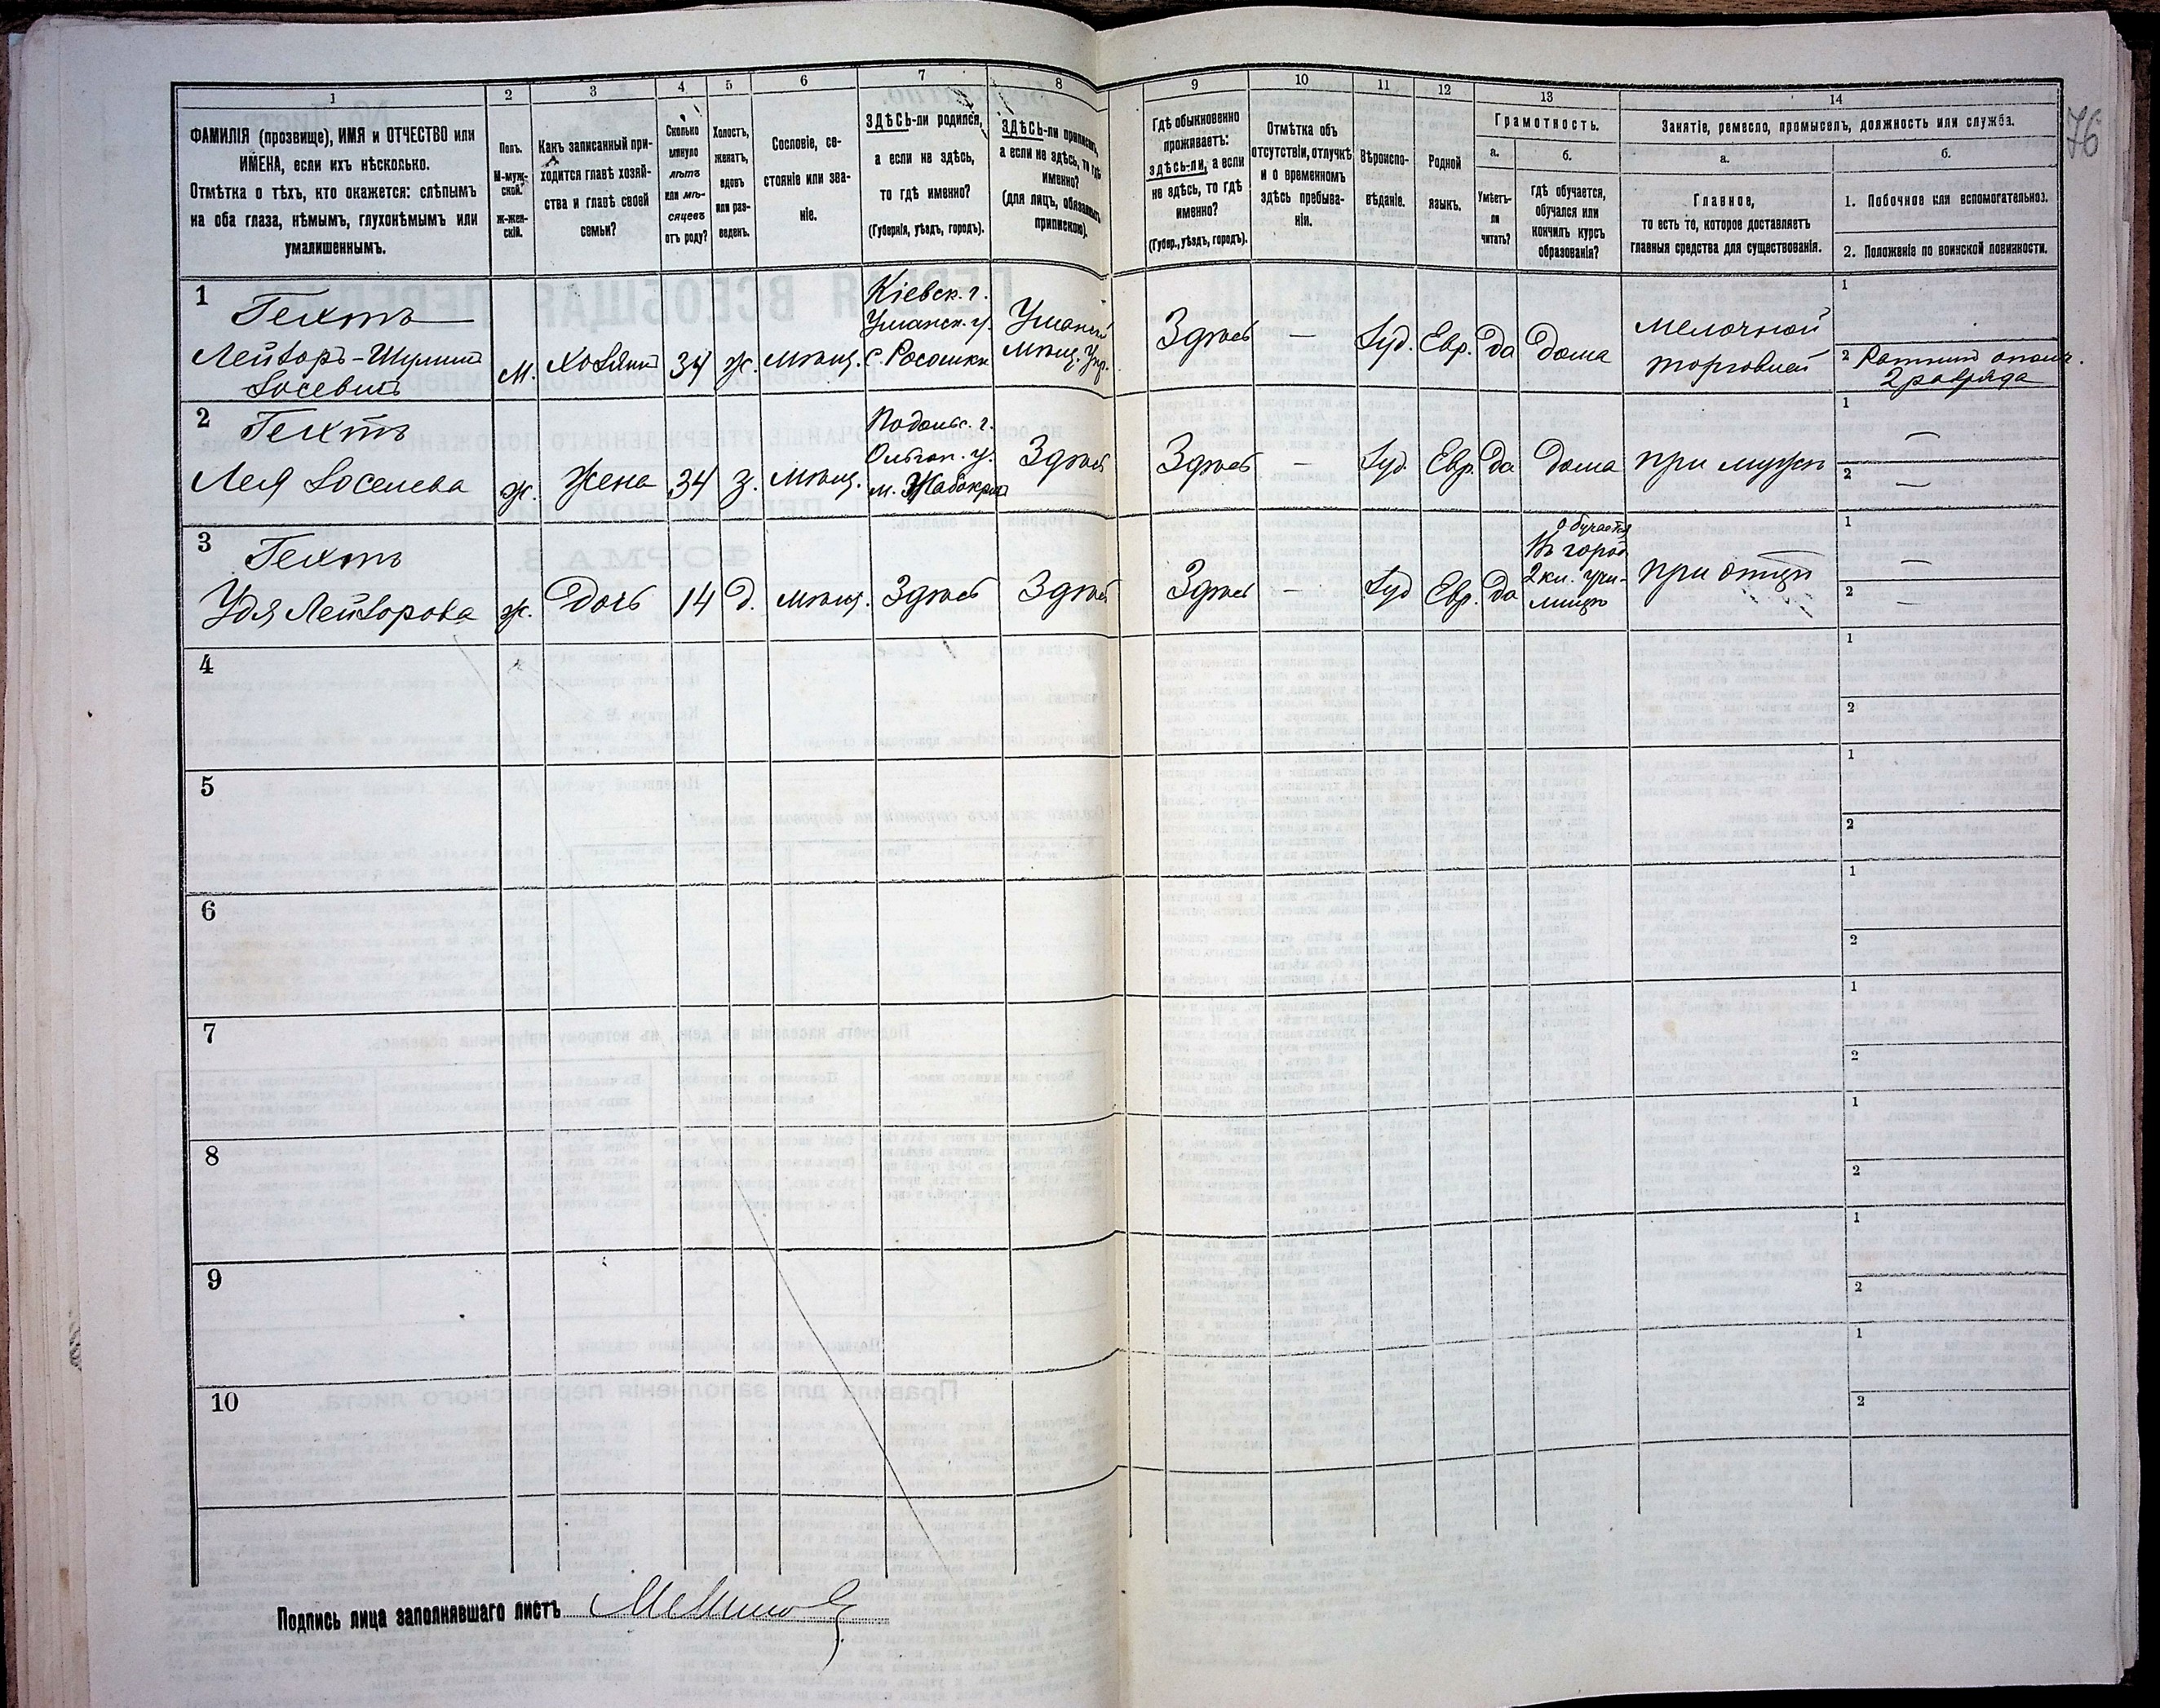 1 2 3 4 5 6 7 8 9 10 11 12 13 14
76
ФАМИЛІЯ (прозвище), ИМЯ и ОТЧЕСТВО или
ИМЕНА, если ихъ нѣсколько.
Отмѣтка о тѣхъ, кто окажется: слѣпымъ
на оба глаза, нѣмымъ, глухонѣмымъ или
умалишеннымъ.
Полъ.
М-муж-
ской.
Ж-жен-
скій.
Какъ записанный при-
ходится главѣ хозяй-
ства и главѣ своей
семьи?
Сколько
минуло
лѣтъ
или мѣ-
сяцевъ
отъ роду?
Холостъ,
женатъ,
вдовъ
или раз-
веденъ.
Сословіе, со-
стояніе или зва-
ніе.
ЗДѢСЬ-ли родился,
а если не здѣсь,
то гдѣ именно?
(Губернія, уѣздъ, городъ).
ЗДѢСЬ-ли приписанъ,
а если не здѣсь, то гдѣ
именно?
(для лицъ, обязанныхъ
припискою).
Гдѣ обыкновенно
проживаетъ:
здѣсь-ли, а если
не здѣсь, то гдѣ
именно?
(Губер., уѣздъ, городъ).
Отмѣтка объ
отсутствіи, отлучкѣ
и о временномъ
здѣсь пребыва-
ніи.
Вѣроиспо-
вѣданіе.
Родной
языкъ.
Грамотность.
а.
Умѣетъ-
ли
читать?
б.
гдѣ обучается,
обучался или
кончилъ курсъ
образованія?
Занятіе, ремесло, промыселъ, должность или служба.
а.
Главное,
то есть то, которое доставляетъ
главныя средства для существованія.
б.
1. Побочное или вспомогательное.
2. Положеніе по воинской повинности.
1
Гехтъ
Лейзоръ-Шулимъ
Іосевичъ
М.
Хозяинъ
34
ж.
мѣщ.
Кіевск. г.
Уманск. у.
с. Росошки
Уманск
Мѣщ. Упр.
Здѣсь
—
Іуд.
Евр.
да
дома
мелочной
торговлей
1
2 Ратникъ ополч.
2 разряда
2
Гехтъ
Лея Іоселева
ж.
Жена
34
з.
мѣщ.
Подольс. г.
Ольгоп. у.
м. Жабокрич
Здѣсь
Здѣсь
—
Іуд.
Евр.
да
дома
при мужѣ
1 —
2 —
3
Гехтъ
Удя Лейзорова
ж.
Дочь
14
д.
мѣщ.
Здѣсь
Здѣсь
Здѣсь
—
Іуд
Евр.
да
обучается
въ город
2 кл. учи-
лищѣ
при отцѣ
1 —
2 —
4
1
2
5
1
2
6
1
2
7
1
2
8
1
2
9
1
2
10
1
2
Подпись лица заполнявшаго листъ